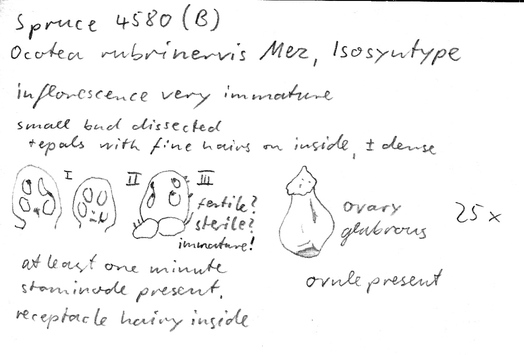 Spruce 4580 (B)
Ocotea rubrinervis Mez, Isosyntype
inflorescence very immature
small bud dissected
tepals with fine hairs on inside, ± dense
I II III
fertile?
sterile?
immature!
ovary
glabrous
25 x
at least one minute
staminode present,
receptacle hairy inside
ovule present